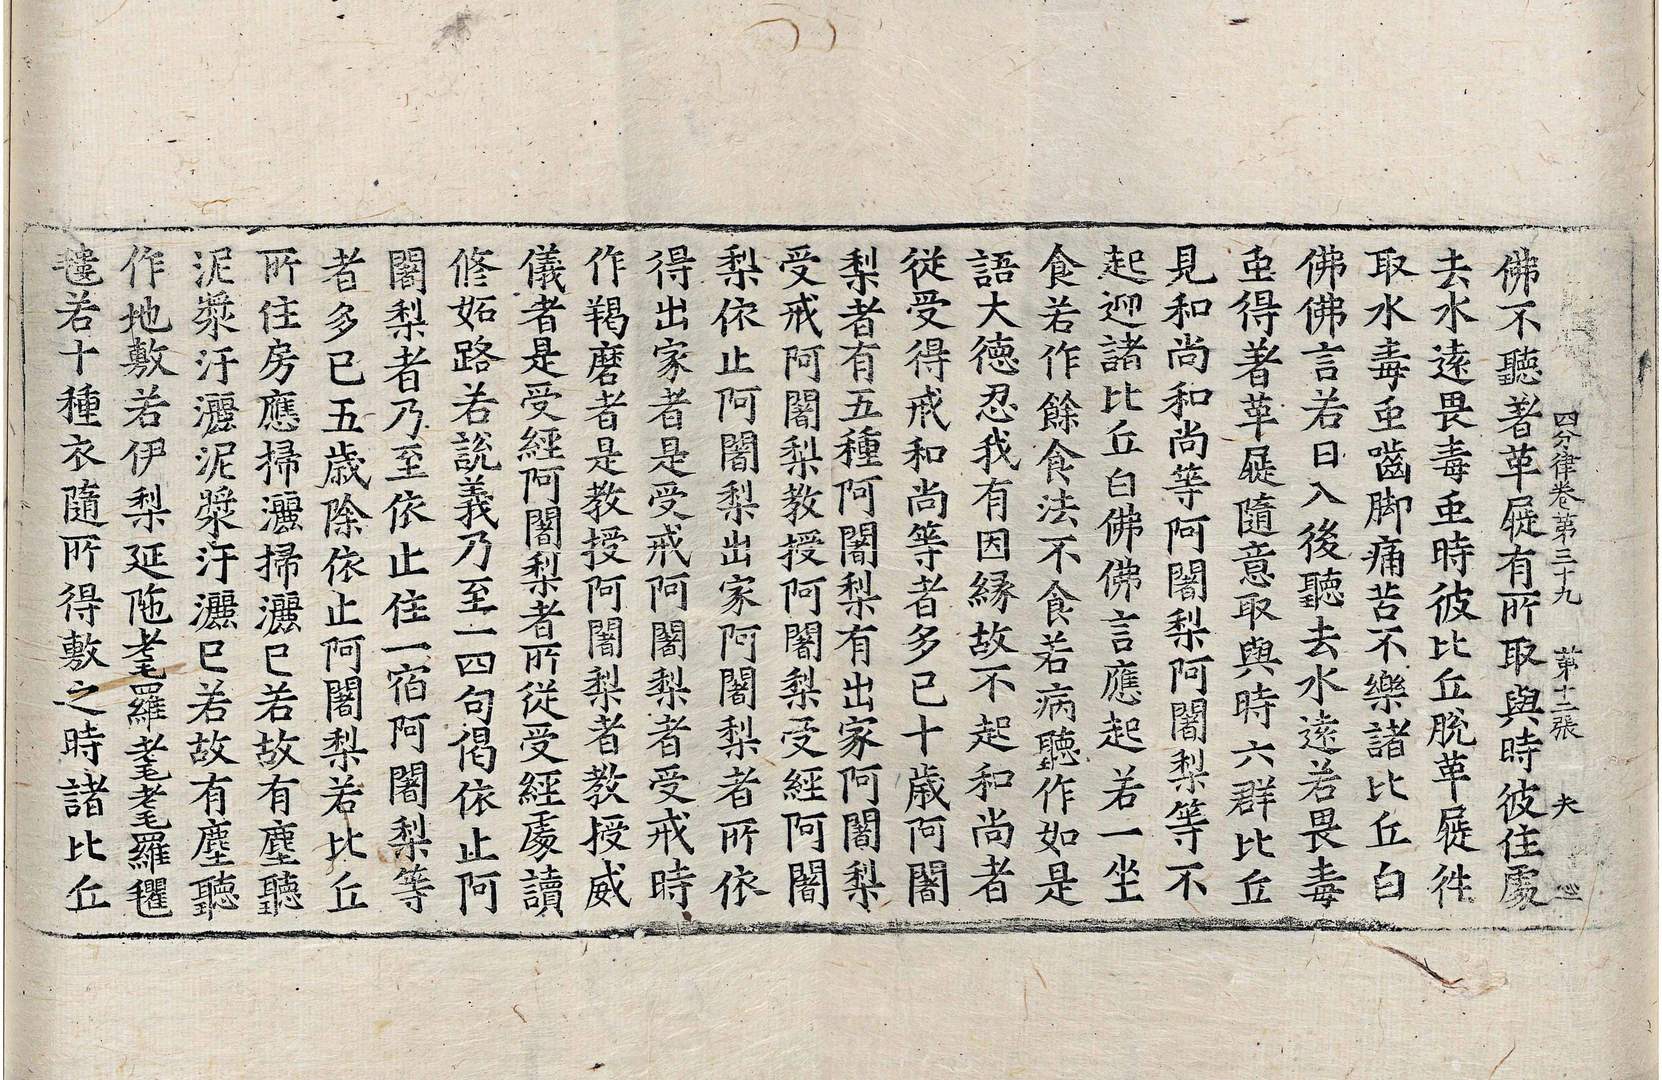 四分律卷第三十九　第十二張　夾
佛不聽著革屣有所取與時彼住處
去水遠畏毒虫時彼比丘脫革屣徃
取水毒虫嚙脚痛苦不樂諸比丘白
佛佛言若日入後聽去水遠若畏毒
虫得著革屣隨意取與時六群比丘
見和尚和尚等阿闍梨阿闍梨等不
起迎諸比丘白佛佛言應起若一坐
食若作餘食法不食若病聽作如是
語大德忍我有因緣故不起和尚者
從受得戒和尚等者多已十歲阿闍
梨者有五種阿闍梨有出家阿闍梨
受戒阿闍梨教授阿闍梨受經阿闍
梨依止阿闍梨出家阿闍梨者所依
得出家者是受戒阿闍梨者受戒時
作羯磨者是教授阿闍梨者教授威
儀者是受經阿闍梨者所從受經處讀
修妬路若說義乃至一四句偈依止阿
闍梨者乃至依止住一宿阿闍梨等
者多已五歲除依止阿闍梨若比丘
所住房應掃灑掃灑已若故有塵聽
泥漿汙灑泥漿汙灑已若故有塵聽
作地敷若伊梨延陁耄羅耄耄羅氍
氀若十種衣隨所得敷之時諸比丘